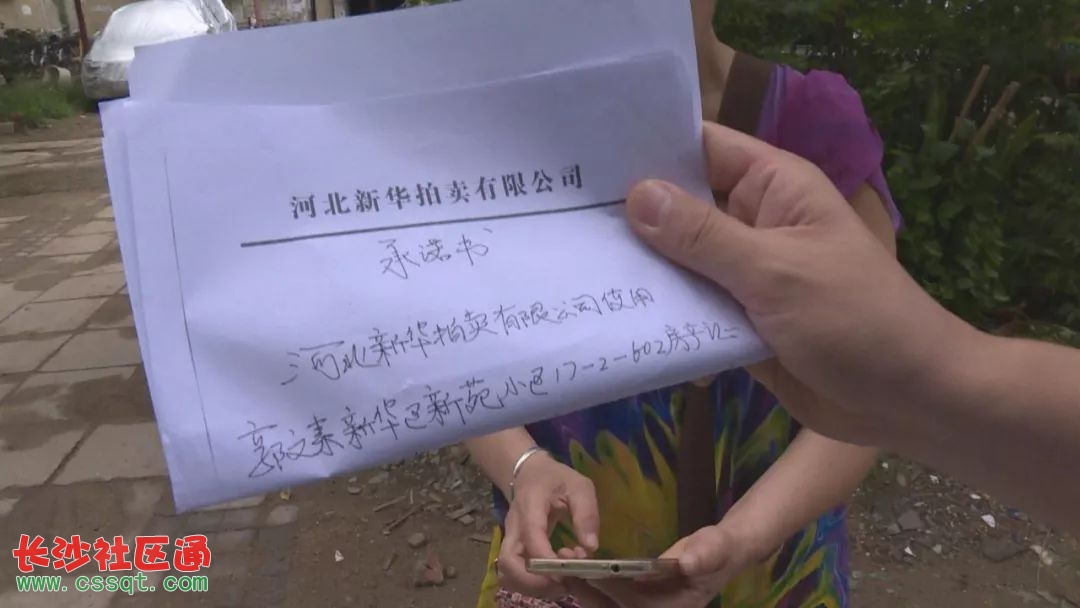 河北新华拍卖有限公司
承诺书
河北新华拍卖有限公司使用
郭文素新华区新苑小区17-2-602房产证
长沙社区通
www.cssqt.com